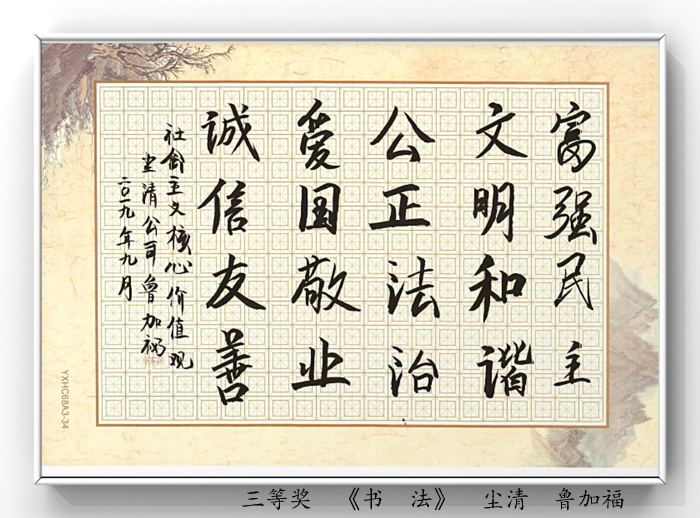 富强民主
文明和谐
公正法治
爱国敬业
诚信友善
社会主义核心价值观
尘清公司鲁加福
二〇一九年九月
YXHC68A3-34
三等奖 《书 法》 尘清 鲁加福